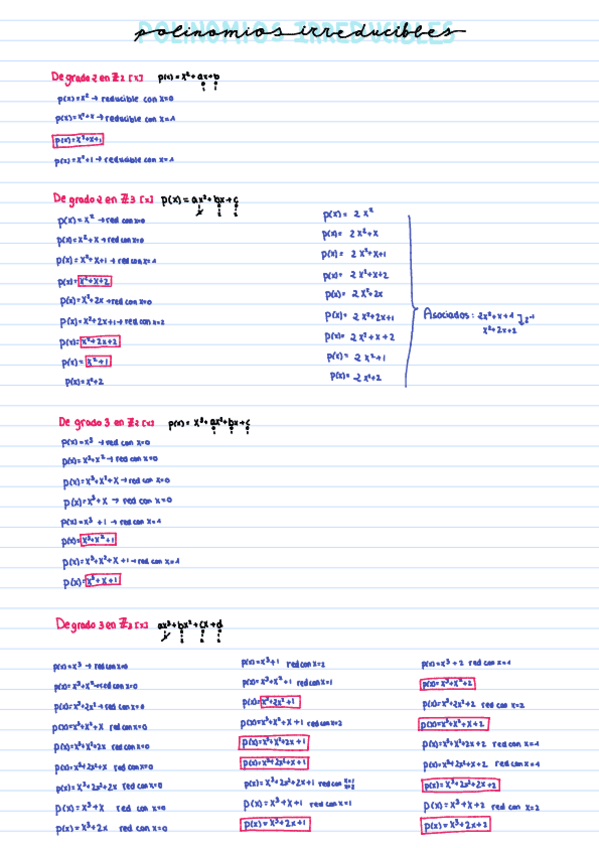 POLINOMIOS IRREDUCIBLES
polinomios irreducibles
De grado 2 en Z2 [x] p(x) = x²+ax+b
p(x) = x² → reducible con x=0
p(x) = x²+x → reducible con x=1
p(x) = x²+x+1
p(x) = x²+1 → reducible con x=1
De grado 2 en Z3 [x] p(x) = ax²+bx+c
p(x) = x² → red con x=0
p(x) = x²+x → red con x=0
p(x) = x²+x+1 → red con x=1
p(x) = x²+x+2
p(x) = x²+2x → red con x=0
p(x) = x²+2x+1 → red con x=2
p(x) = x²+2x+2
p(x) = x²+1
p(x) = x²+2
p(x) = 2x²
p(x) = 2x²+x
p(x) = 2x²+x+1
p(x) = 2x²+x+2
p(x) = 2x²+2x
p(x) = 2x²+2x+1
p(x) = 2x²+x+2
p(x) = 2x²+1
p(x) = 2x²+2
Asociados: 2x²+x+1
x²+2x+2
De grado 3 en Z2 [x] p(x) = x³+ax²+bx+c
p(x) = x³ → red con x=0
p(x) = x³+x² → red con x=0
p(x) = x³+x²+x → red con x=0
p(x) = x³+x → red con x=0
p(x) = x³ +1 → red con x=1
p(x) = x³+x²+1
p(x) = x³+x²+x+1 → red con x=1
p(x) = x³+x+1
De grado 3 en Z3 [x] ax³+bx²+cx+d
p(x) = x³ → red con x=0
p(x) = x³+x² → red con x=0
p(x) = x³+2x² → red con x=0
p(x) = x³+x²+x red con x=0
p(x) = x³+x²+2x red con x=0
p(x) = x³+2x²+x red con x=0
p(x) = x³+2x²+2x red con x=0
p(x) = x³+x red con x=0
p(x) = x³+2x red con x=0
p(x) = x³+1 red con x=2
p(x) = x³+x²+1 red con x=1
p(x) = x³+2x²+1
p(x) = x³+x²+x+1 red con x=2
p(x) = x³+x²+2x+1
p(x) = x³+2x²+x+1
p(x) = x³+2x²+2x+1 red con x=1 x=2
p(x) = x³+x+1 red con x=1
p(x) = x³+2x+1
p(x) = x³+2 red con x=1
p(x) = x³+x²+2
p(x) = x³+2x²+2 red con x=2
p(x) = x³+x²+x+2
p(x) = x³+x²+2x+2 red con x=1
p(x) = x³+2x²+x+2 red con x=1
p(x) = x³+2x²+2x+2
p(x) = x³+x+2 red con x=2
p(x) = x³+2x+2